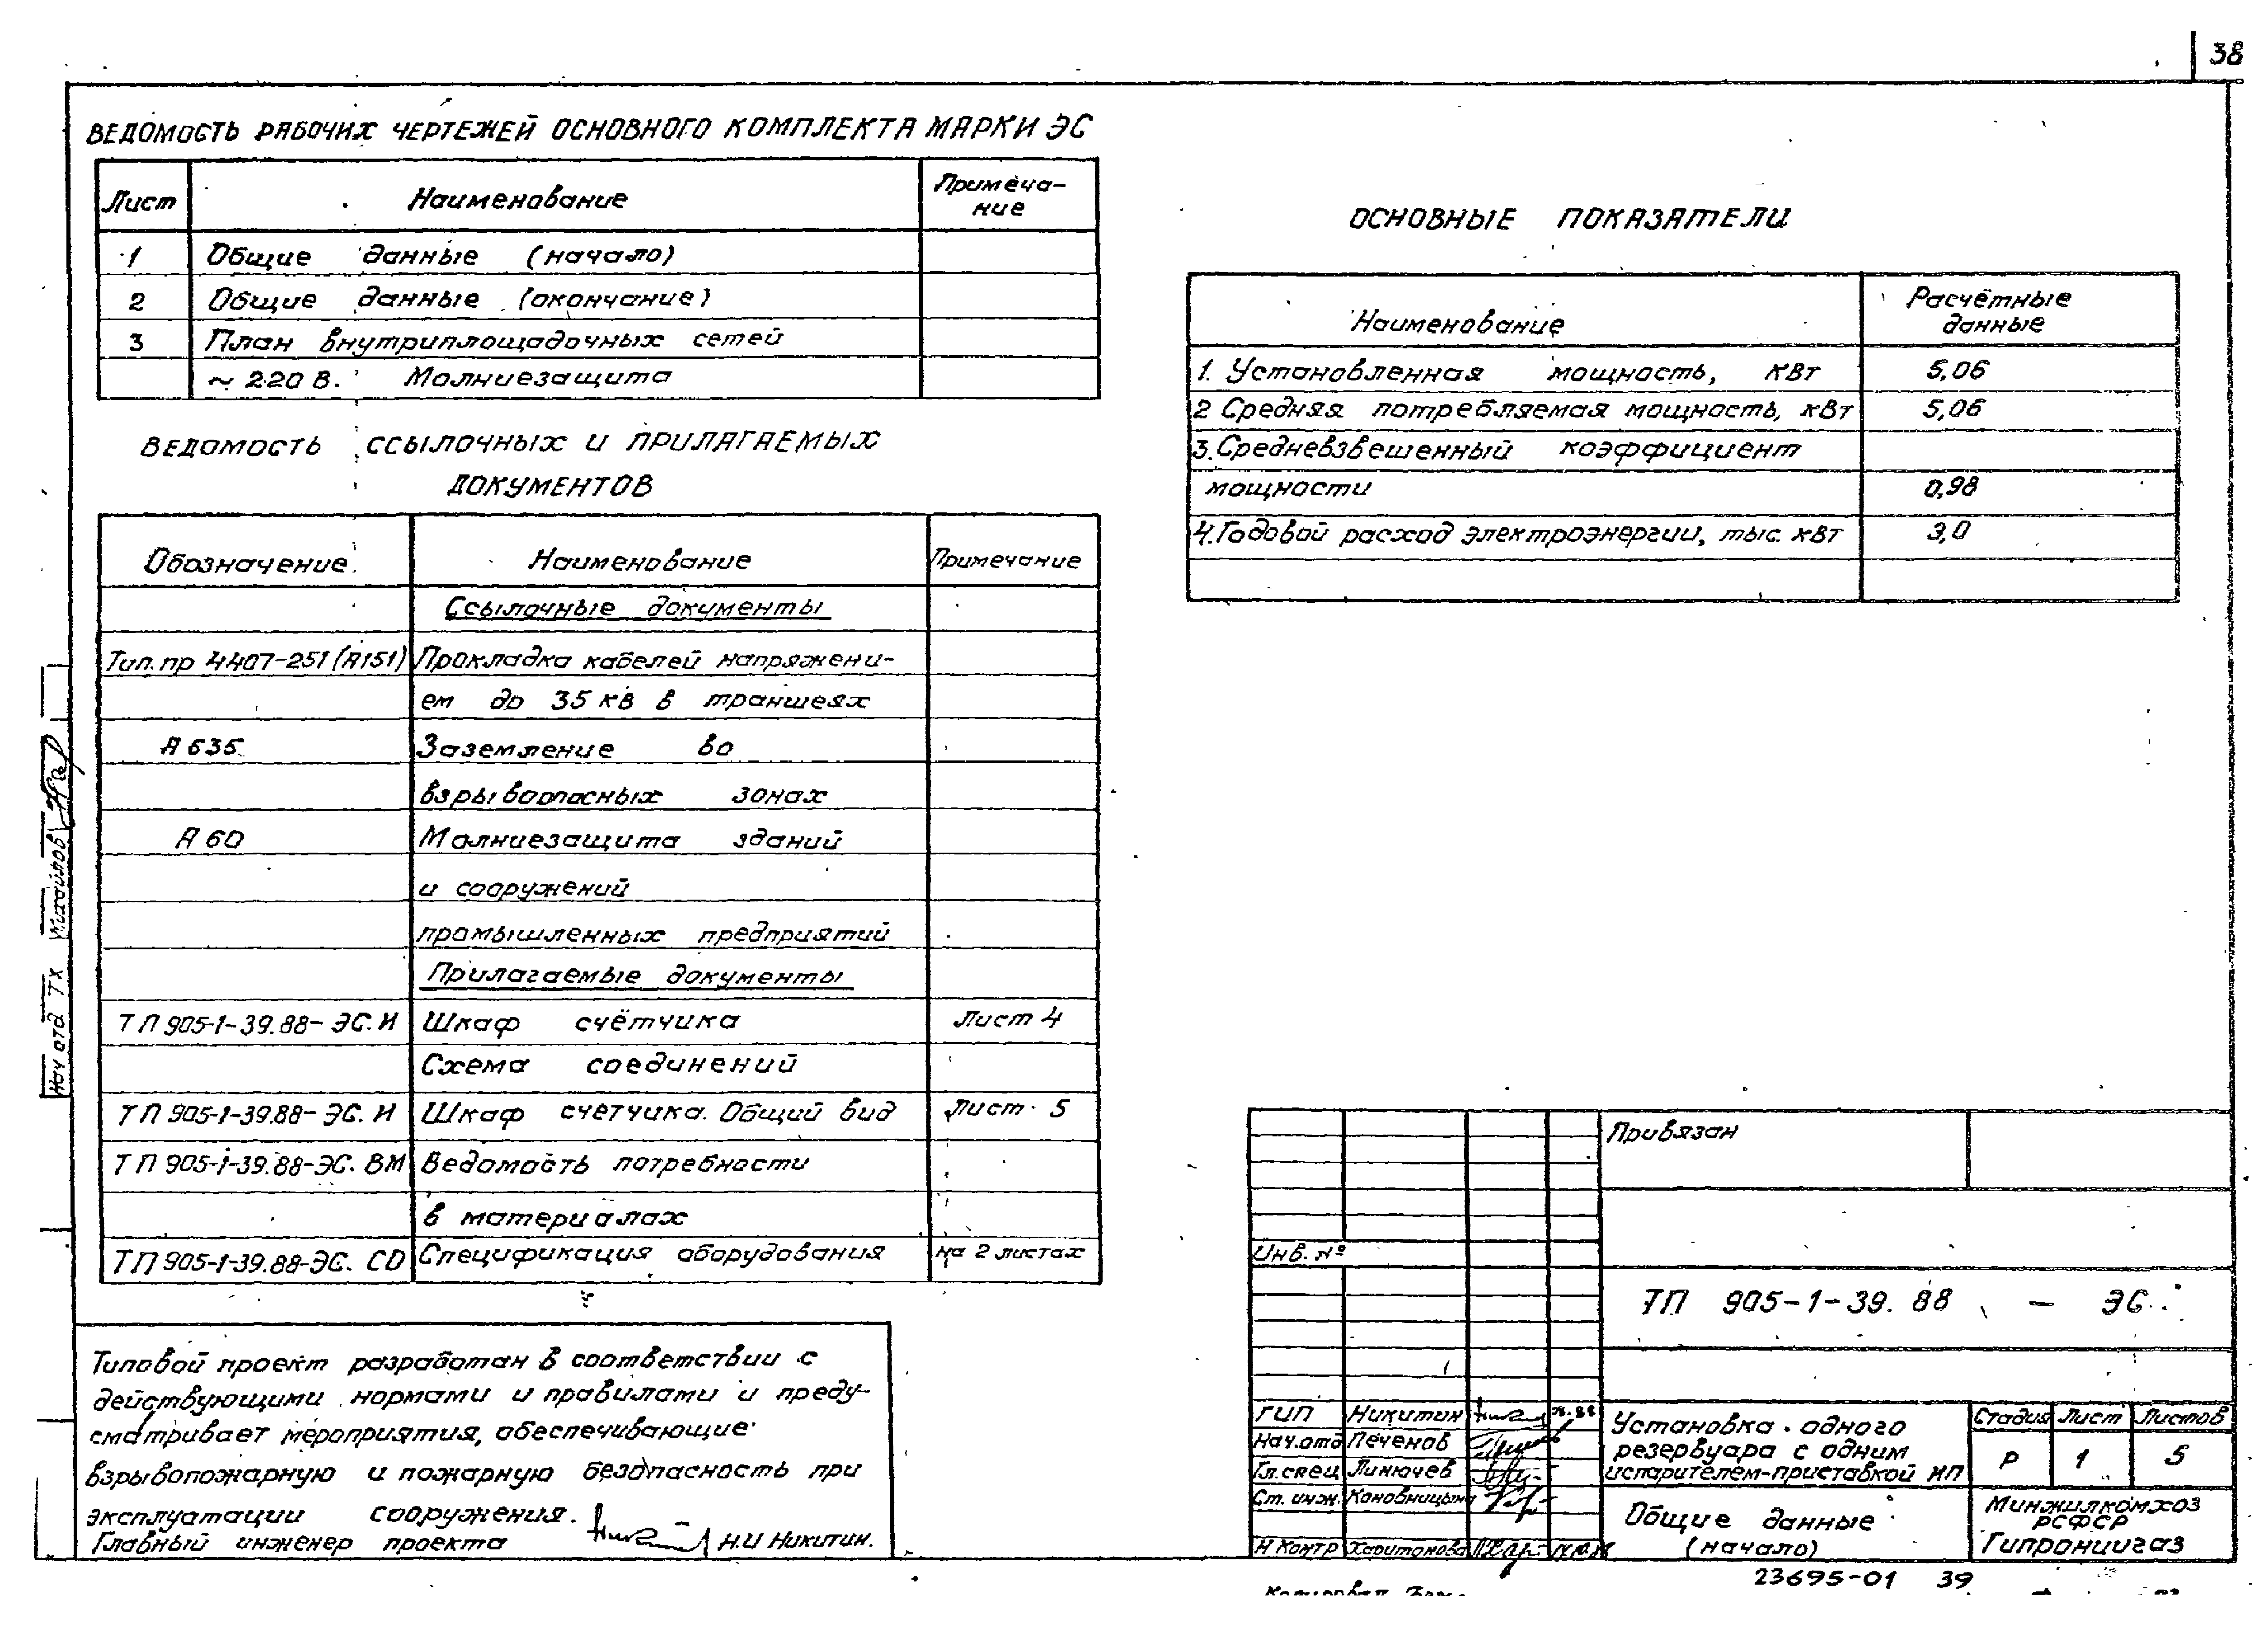 38
ВЕДОМОСТЬ РАБОЧИХ ЧЕРТЕЖЕЙ ОСНОВНОГО КОМПЛЕКТА МАРКИ ЭС
Лист Наименование Примеча-
ние
1 Общие данные (начало)
2 Общие данные (окончание)
3 План внутриплощадочных сетей
~ 220 В. Молниезащита
ВЕДОМОСТЬ ССЫЛОЧНЫХ И ПРИЛАГАЕМЫХ
ДОКУМЕНТОВ
Обозначение Наименование Примечание
Ссылочные документы
Тип. пр 4407-251 (А151) Прокладка кабелей напряжени-
ем до 35 кВ в траншеях
А 635 Заземление во
взрывоопасных зонах
А 60 Молниезащита зданий
и сооружений
промышленных предприятий
Прилагаемые документы
ТП 905-1-39.88-ЭС.И Шкаф счётчика Лист 4
Схема соединений
ТП 905-1-39.88-ЭС.И Шкаф счетчика. Общий вид Лист 5
ТП 905-1-39.88-ЭС.ВМ Ведомость потребности
в материалах
ТП 905-1-39.88-ЭС.СО Спецификация оборудования на 2 листах
Типовой проект разработан в соответствии с
действующими нормами и правилами и преду-
сматривает мероприятия, обеспечивающие
взрывопожарную и пожарную безопасность при
эксплуатации сооружения.
Главный инженер проекта Н.И Никитин.
Нач отд ТХ Михайлов
ОСНОВНЫЕ ПОКАЗАТЕЛИ
Наименование Расчётные
данные
1. Установленная мощность, кВт 5,06
2 Средняя потребляемая мощность, кВт 5,06
3. Средневзвешенный коэффициент
мощности 0,98
4. Годовой расход электроэнергии, тыс. кВт 3,0
Привязан
Инв. №
ТП 905-1-39. 88 - ЭС
ГИП Никитин
Нач.отд Печенов
Гл. спец Линючев
Ст. инж. Коновницына
Н. Контр Харитонова
Установка одного
резервуара с одним
испарителем-приставкой ИП
Стадия Лист Листов
Р 1 5
Общие данные
(начало)
Минжилкомхоз
РСФСР
Гипрониигаз
23695-01 39